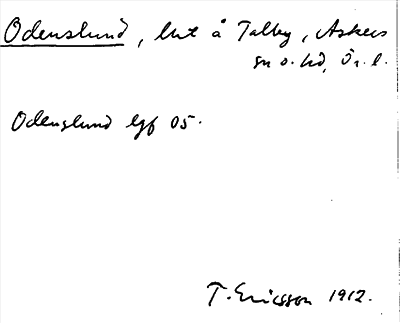 Odenslund, lht å Talby, Askers
sn o. hd, Ör. l.
Odenslund egf 05.
T. Ericsson 1912.